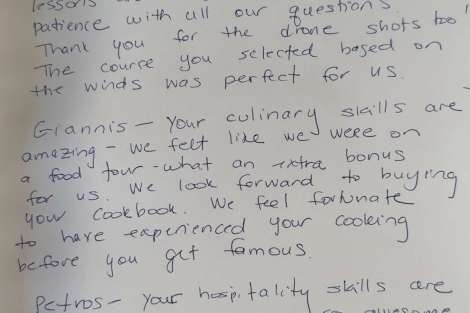 lessons
patience with all our questions.
Thank you for the drone shots too!
The course you selected based on
the winds was perfect for us.
Giannis - Your culinary skills are
amazing - we felt like we were on
a food tour - what an extra bonus
for us. We look forward to buying
your cookbook. We feel fortunate
to have experienced your cooking
before you get famous.
Petros - your hospitality skills are
awesome